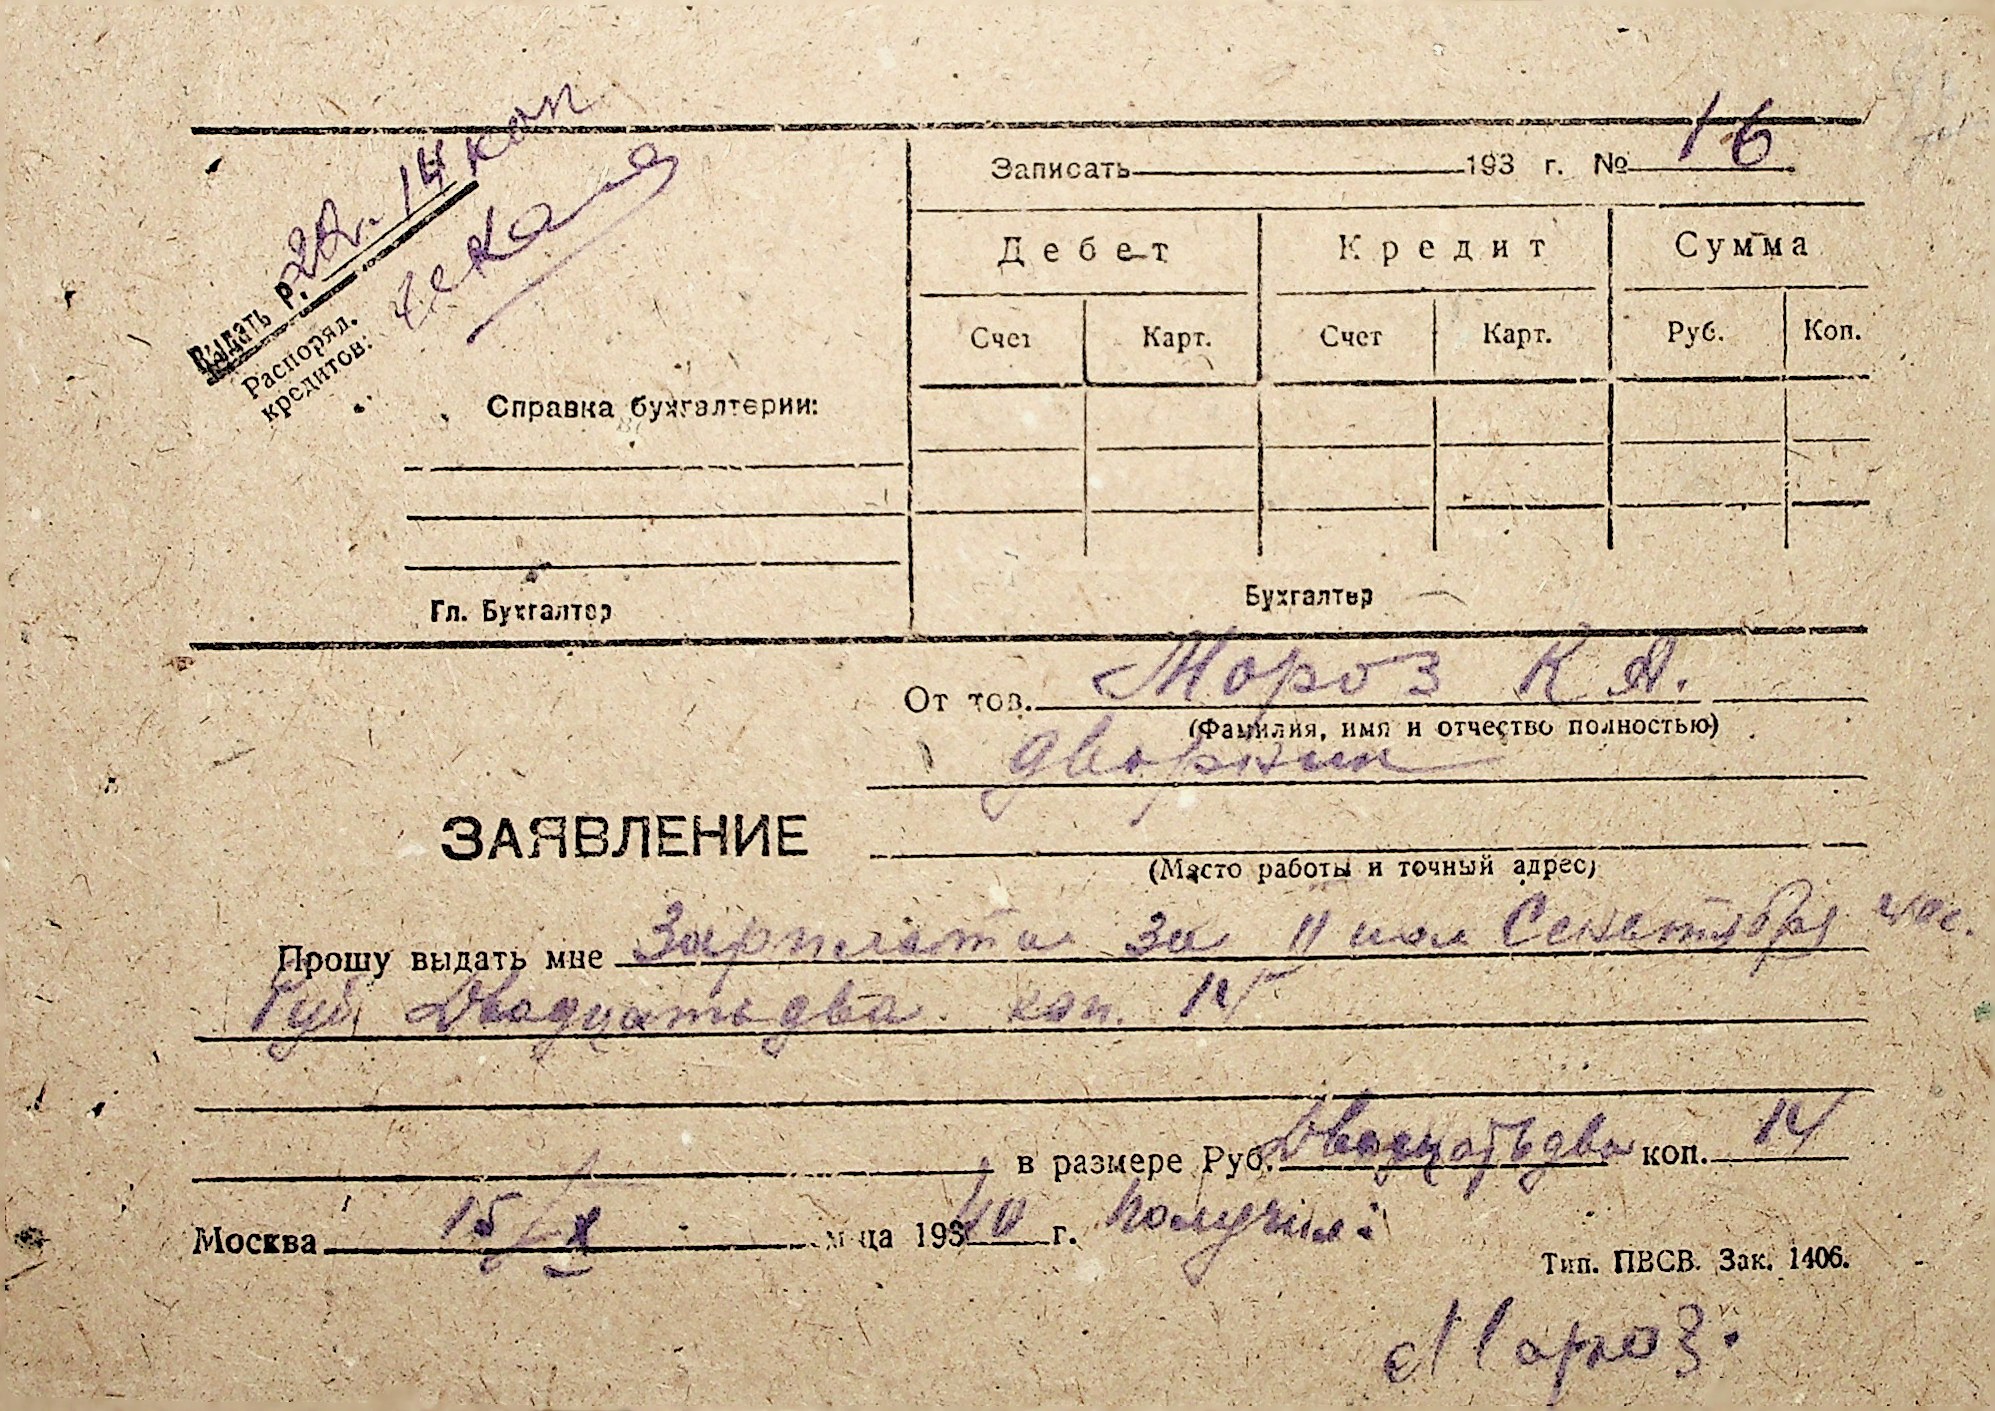 Выдать р. 22 р. 14 коп
Распоряд.
кредитов:
Справка бухгалтерии:
Гл. Бухгалтер
Записать 193 г. № 16
Дебет Кредит Сумма
Счет Карт. Счет Карт. Руб. Коп.
Бухгалтер
От тов. Мороз К А.
(Фамилия, имя и отчество полностью)
дворник
ЗАЯВЛЕНИЕ
(Место работы и точный адрес)
Прошу выдать мне Зарплата за II пол Сентября
Руб Двадцатьдва коп. 14
в размере Руб. Двадцатьдва коп. 14
Москва 15/X м-ца 19340 г. Получил:
Тип. ПВСВ. Зак. 1406.
Мороз.